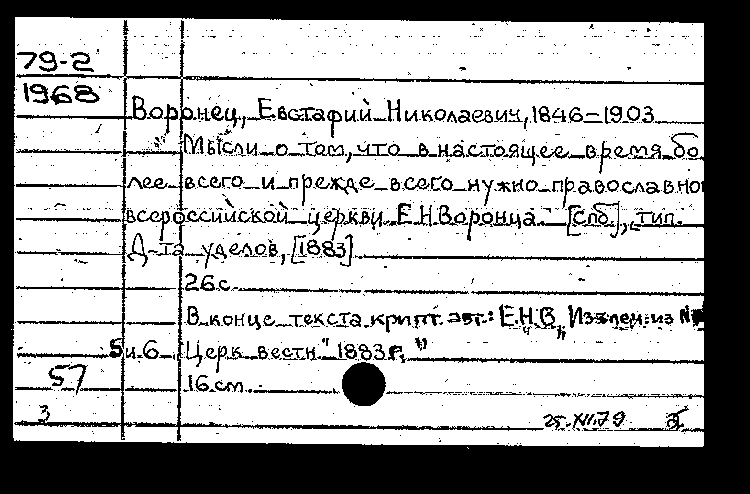 79-2
1968
Воронец, Евстафий Николаевич, 1846–1903
Мысли о том, что в настоящее время бо
лее всего и прежде всего нужно православно
всероссийской церкви Е.Н.Воронца. [Спб.], тип.
Д-та уделов, [1883]
26с.
В конце текста крипт. авт.: Е.Н.В. Извлеч. из №
5 и 6 "Церк. вестн." 1883 г.
57
16 см.
3
25.XII.79